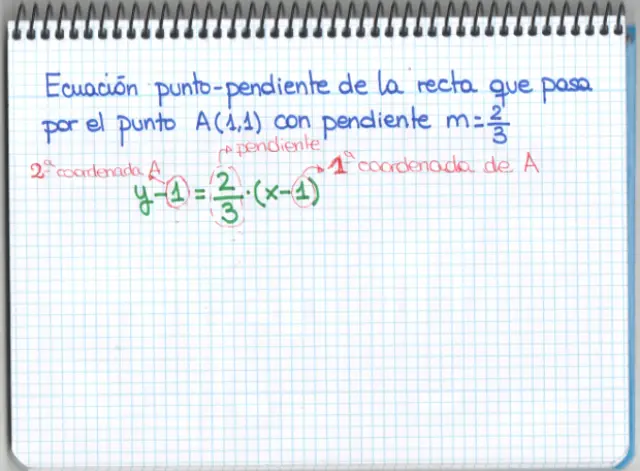 Ecuación punto-pendiente de la recta que pasa
por el punto A(1,1) con pendiente m=2/3
pendiente
2ª coordenada A
1ª coordenada de A
y-1=2/3·(x-1)